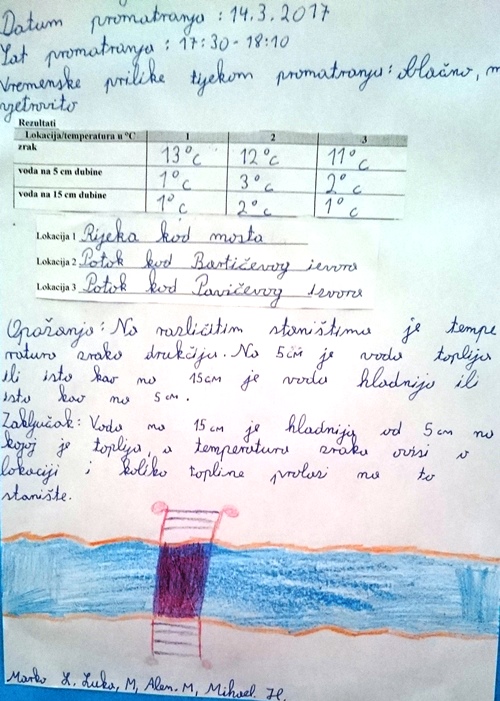 Datum promatranja : 14.3.2017
Sat promatranja : 17:30-18:10
Vremenske prilike tijekom promatranja: oblačno,
vjetrovito
Rezultati
Lokacija/temperatura u °C 1 2 3
zrak 13°C 12°C 11°C
voda na 5 cm dubine 1°C 3°C 2°C
voda na 15 cm dubine 1°C 2°C 1°C
Lokacija 1 Rijeka kod mosta
Lokacija 2 Potok kod Bartičevog izvora
Lokacija 3 Potok kod Pavičevog izvora
Opažanja: Na različitim staništima je tempe
ratura zraka drukčija. Na 5cm je voda toplija
ili isto kao na 15cm je voda hladnija ili
isto kao na 5cm.
Zaključak: Voda na 15cm je hladnija od 5cm na
kojoj je toplija, a temperatura zraka ovisi o
lokaciji i koliko topline prolazi na to
stanište.
Marko L. Luka, M, Alen. M, Mihael. H.